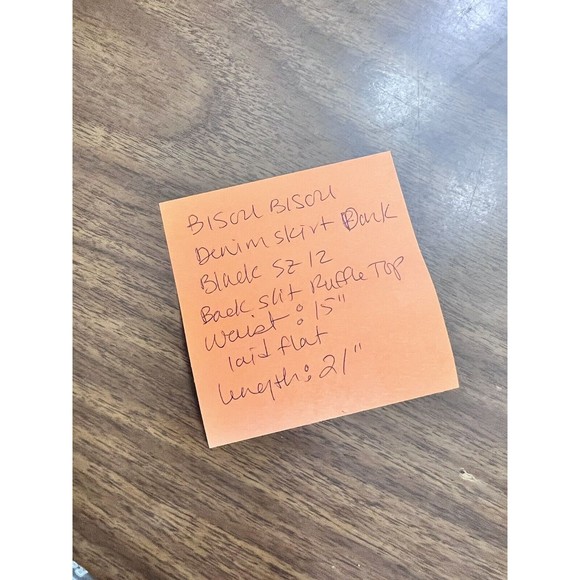 Bisou Bisou
Denim skirt Dark
Black Sz 12
Back slit Ruffle Top
Waist: 15"
laid flat
length: 21"